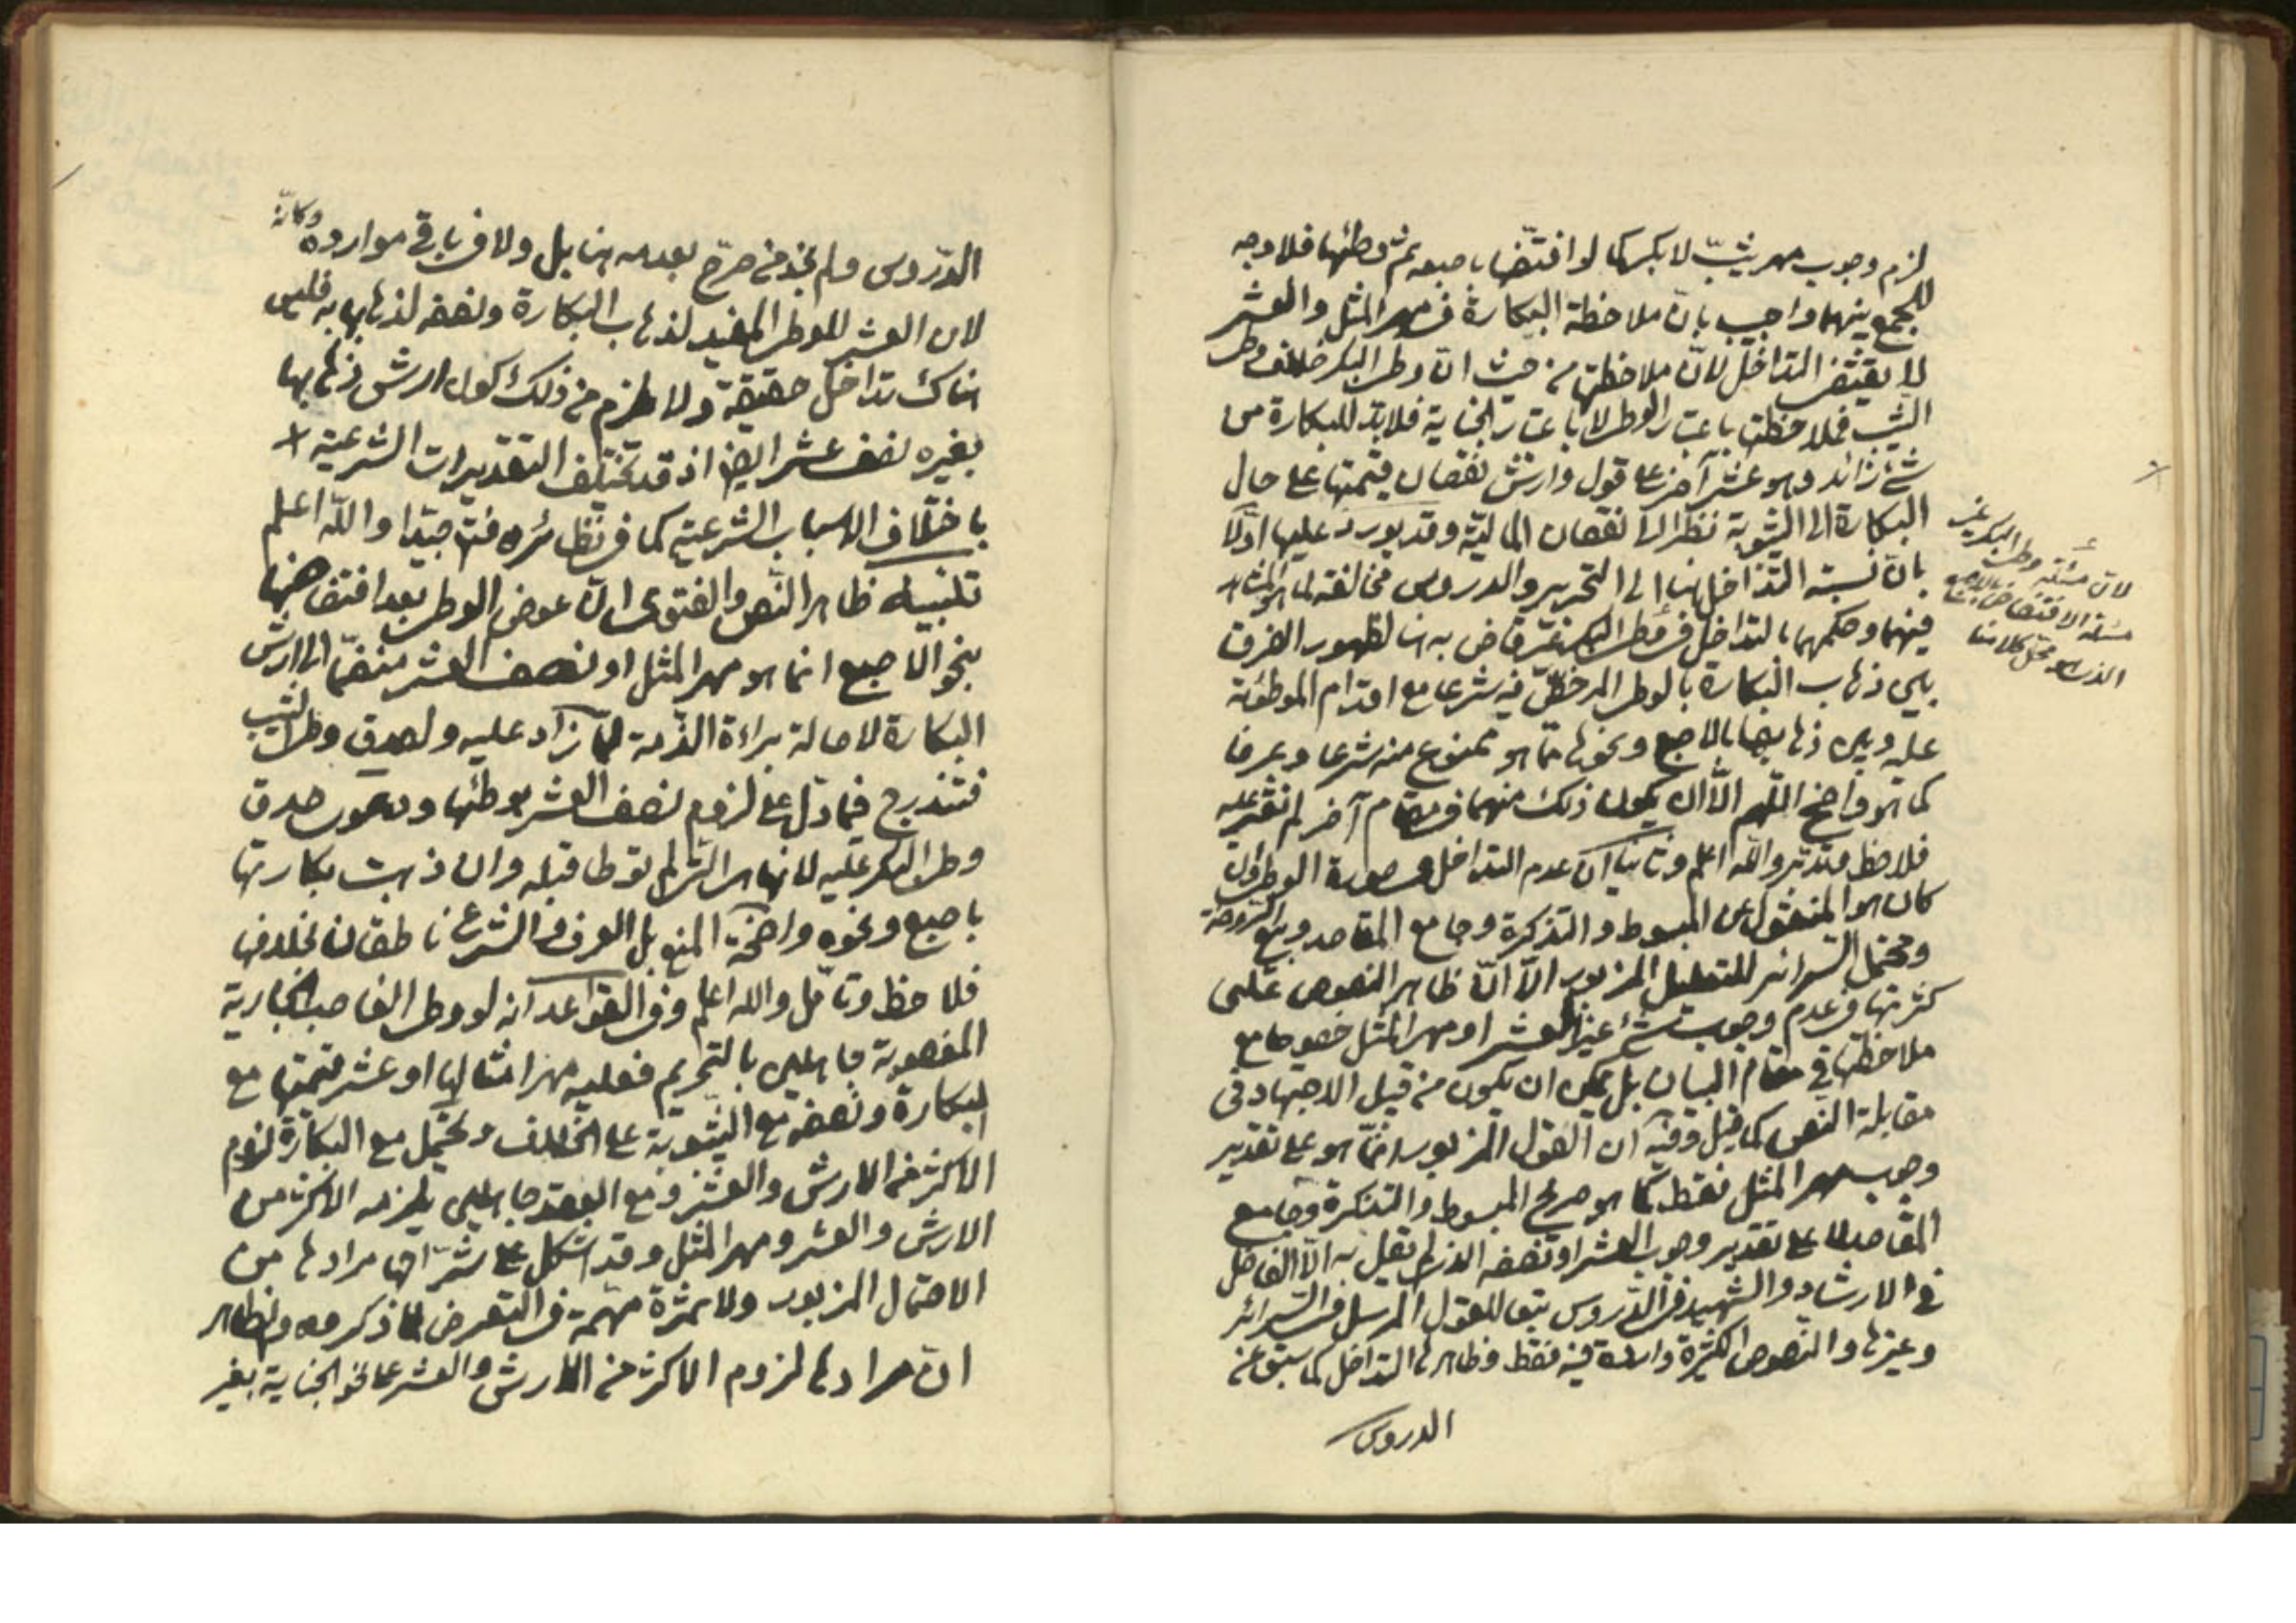 لزم وجوب مهر ثيّب لا بكر كما لو افتضّها باصبعه ثمّ وطئها فلا وجه
للجمع بينهما واجيب بانّ ملاحظة البكارة في مهر المثل والعشر
لا يقتضى التداخل لانّ ملاحظتها من حيث انّ وطى البكر خلاف وطى
الثيّب فملاحظتها باعتبار الوطى لا باعتبار الجناية فلا بدّ للبكارة من
شئ زائد وهو عشر آخر على قول وارش نقصان قيمتها على حال
البكارة الى الثيوبة نظرا الى نقصان الماليّة وقد يورد عليها اوّلا
بانّ نسبة التداخل هنا الى التحرير والدروس مخالفة لما هو المشاهد
فيهما وحكمهما بالتداخل في وطى البكر غير قاض به هنا لظهور الفرق
بين ذهاب البكارة بالوطى المرخّص فيه شرعا مع اقدام الموطوئة
عليه وبين ذهابها بالاصبع ونحوها ممّا هو ممنوع منه شرعا وعرفا
كما هو واضح اللّهم الّا ان يكون ذلك منهما في مقام آخر لم نعثر عليه
فلاحظ وتدبّر واللّه اعلم وثانيا انّ عدم التداخل في صورة الوطى وان
كان هو المنقول عن المبسوط والتذكرة وجامع المقاصد وبيع الروضة
ومحتمل السرائر للتعليل المزبور الّا انّ ظاهر النصوص على
كثرتها في عدم وجوب شئ غير العشر او مهر المثل خصوصا مع
ملاحظتها في مقام البيان بل يمكن ان يكون من قبيل الاجتهاد في
مقابلة النص كما قيل وفيه انّ القول المزبور انّما هو على تقدير
وجوب مهر المثل فقط كما هو صريح المبسوط والتذكرة وجامع
المقاصد لا على تقدير وجوب العشر او نصفه الذى لم يقل به الّا الفاضل
في الارشاد والشهيد في الدّروس تبعا للقول المرسل في السرائر
وغيرها والنصوص الكثيرة واردة فيه فقط وظاهرها التداخل كما سبق عن
الدروس
لانّ مسئلة وطى البكر غير
مسئلة الافتضاض بالاصبع
الذى هو محلّ كلامنا
الدّروس ولم نجد من صرّح بعدمه هنا بل ولا في باقي موارده وكانّه
لان العشر للوطى المفيد لذهاب البكارة ونصفه لذهابها به فليس
هناك تداخل حقيقة ولا يلزم من ذلك كون ارش ذهابها
بغيره نصف عشر ايضا اذ قد تختلف التقديرات الشرعية
باختلاف الاسباب الشرعية كما في نظائره فتدبّر جيّدا واللّه اعلم
تنبيه ظاهر النّص والفتوى انّ عوض الوطى بعد افتضاضها
بنحو الاصبع انما هو مهر المثل او نصف العشر منضمّا الى ارش
البكارة لاصالة براءة الذّمة ممّا زاد عليه ولصدق وطى الثيّب
فتندرج فيما دلّ على لزوم نصف العشر بوطئها ودعوى صدق
وطى البكر عليه لانها هى التى لم توطا قبله وان ذهبت بكارتها
باصبع ونحوه واضحة المنع بل العرف والشرع ناطقان بخلافها
فلاحظ وتامّل واللّه اعلم وفي القواعد انه لو وطى الغاصب الجارية
المغصوبة جاهلين بالتحريم فعليه مهر امثالها او عشر قيمتها مع
البكارة ونصفه مع الثيّوبة على الخلاف ويحتمل مع البكارة لزوم
الاكثر من الارش والعشر ومع العقد جاهلين يلزمه الاكثر من
الارش والعشر ومهر المثل وقد اشكل على شرّاحها مرادها من
الاحتمال المزبور ولا ثمرة مهمّة في التعرض لما ذكروه والظاهر
انّ مرادها لزوم الاكثر من الارش والعشر على نحو الجناية بغير